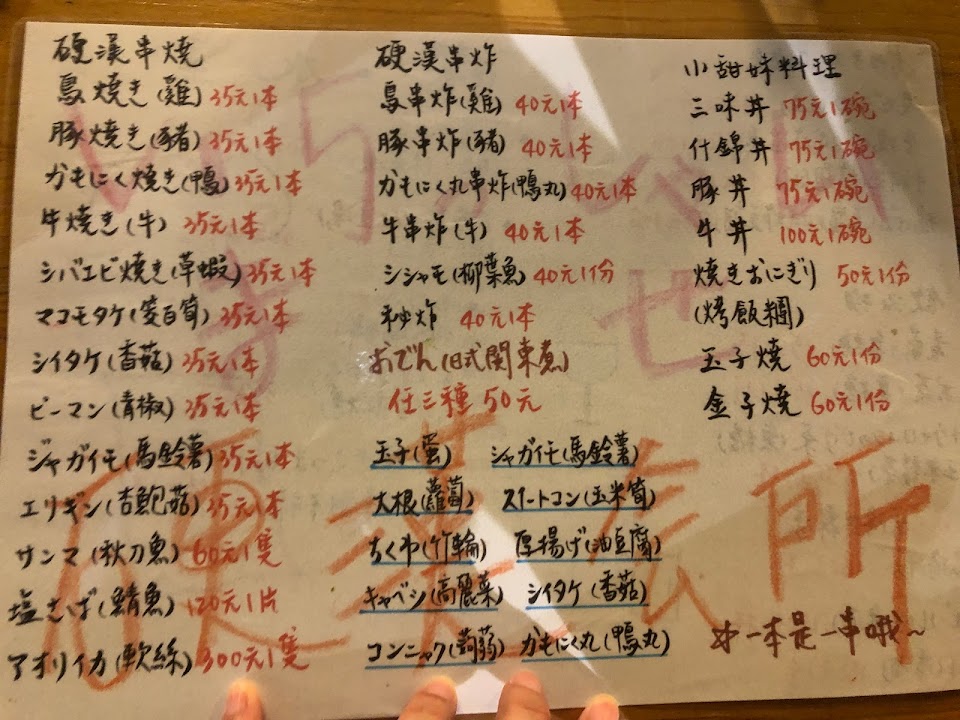 硬漢串燒
鳥燒き(雞) 35元1本
豚燒き(豬) 35元1本
かもにく燒き(鴨) 35元1本
牛燒き(牛) 35元1本
シバエビ燒き(草蝦) 35元1本
マコモタケ(筊白筍) 35元1本
シイタケ(香菇) 35元1本
ピーマン(青椒) 35元1本
ジャガイモ(馬鈴薯) 35元1本
エリギン(杏鮑菇) 35元1本
サンマ(秋刀魚) 60元1隻
塩さば(鯖魚) 120元1片
アオリイカ(軟絲) 300元1隻
硬漢串炸
鳥串炸(雞) 40元1本
豚串炸(豬) 40元1本
かもにく丸串炸(鴨丸) 40元1本
牛串炸(牛) 40元1本
シシャモ(柳葉魚) 40元1份
秘炸 40元1本
おでん(日式関東煮)
任三種 50元
玉子(蛋) ジャガイモ(馬鈴薯)
大根(蘿蔔) スイートコン(玉米筍)
ちくわ(竹輪) 厚揚げ(油豆腐)
キャベシ(高麗菜) シイタケ(香菇)
コンニャク(蒟蒻) かもにく丸(鴨丸)
小甜妹料理
三味丼 75元1碗
什錦丼 75元1碗
豚丼 75元1碗
牛丼 100元1碗
燒きおにぎり 50元1份
(烤飯糰)
玉子燒 60元1份
金子燒 60元1份
一本是一串哦~
いらっしゃ
ませ
所